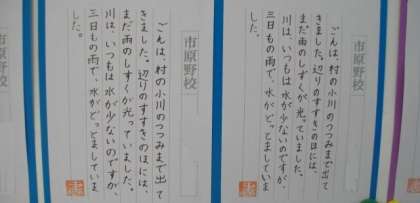 市原野校
ごんは、村の小川のつつみまで出て
きました。辺りのすすきのほには、
まだ雨のしずくが光っていました。
川は、いつもは水が少ないのですが、
三日もの雨で、水がどっとましていま
した。
市原野校
ごんは、村の小川のつつみまで出て
きました。辺りのすすきのほには、
まだ雨のしずくが光っていました。
川は、いつもは水が少ないのですが、
三日もの雨で、水がどっとましていま
した。